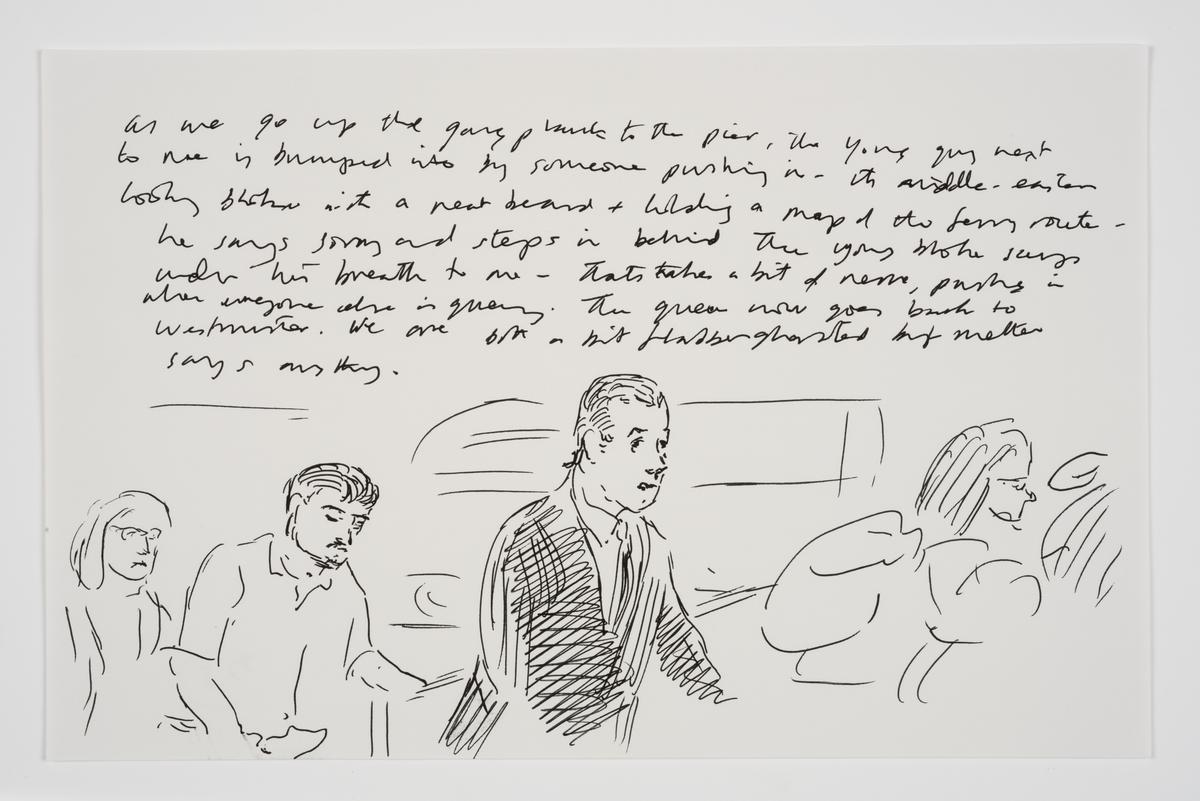 as we go up the gang plank to the pier, the young guy next
to me is bumped into by someone pushing in - its middle-eastern
looking bloke with a neat beard + holding a map of the ferry route -
he says sorry and steps in behind The young bloke says
under his breath to me - thats takes a bit of nerve, pushing in
when everyone else is queuing. The queue now goes back to
Westminster. We are both a bit flabberghasted but
says anything.